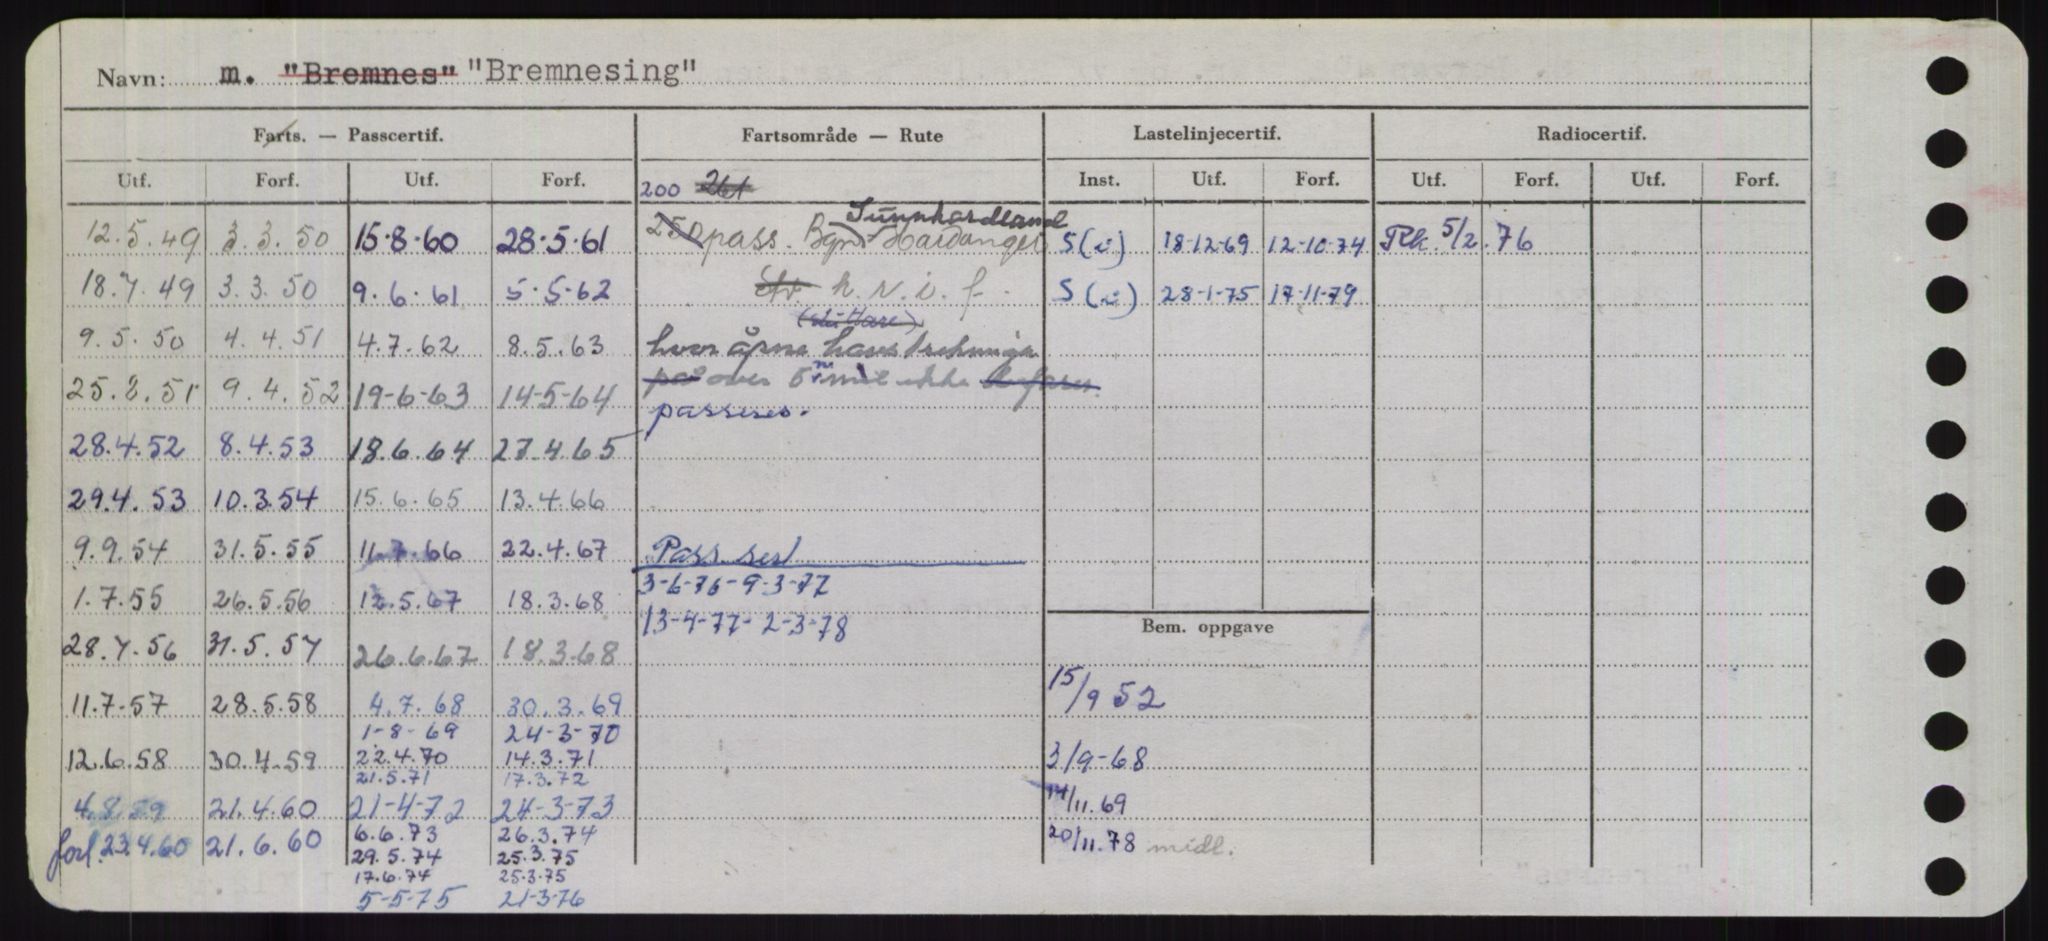 Navn: m. "Bremnes" "Bremnesing"
Farts. — Passcertif. Fartsområde — Rute Lastelinjecertif. Radiocertif.
Utf. Forf. Utf. Forf. 200 261 Inst. Utf. Forf. Utf. Forf. Utf. Forf.
Sunnhordland
12.5.49 3.3.50 15-8-60 28-5-61 250 pass. Bgn - Hardanger S(i) 18-12-69 12-10-74 Rk. 5/2.76
18.7.49 3.3.50 9.6.61 5-5-62 h.r.i.f. S(i) 28-1-75 17-11-79
9.5.50 4.4.51 4.7.62 8.5.63 hvor åpne havstrekninger
25.8.51 9.4.52 19-6-63 14-5-64 på over 5 mil ikke befares
passeres.
28.4.52 8.4.53 18.6.64 27.4.65
29.4.53 10.3.54 15.6.65 13.4.66
9.9.54 31.5.55 11.7.66 22.4.67 Pass.sert
3-6-76-9-3-77
1.7.55 26.5.56 12.5.67 18.3.68
13-4-77-2-3-78
Bem. oppgave
28.7.56 31.5.57 26.6.67 18.3.68
11.7-57 28.5.58 4.7.68 30.3.69 15/9 52
1-8-69 24-3-70
12.6.58 30.4.59 22.4.70 14.3.71 3/9-68
21.5.71 17.3.72
4.8.59 21.4.60 21-4-72 24-3-73 /11.69
forl. 23.4.60 21.6.60 6.6.73 26.3.74 20/11.78 midl.
29.5.74 25.3.75
17.6.74 25.3.75
5-5-75 21-3-76